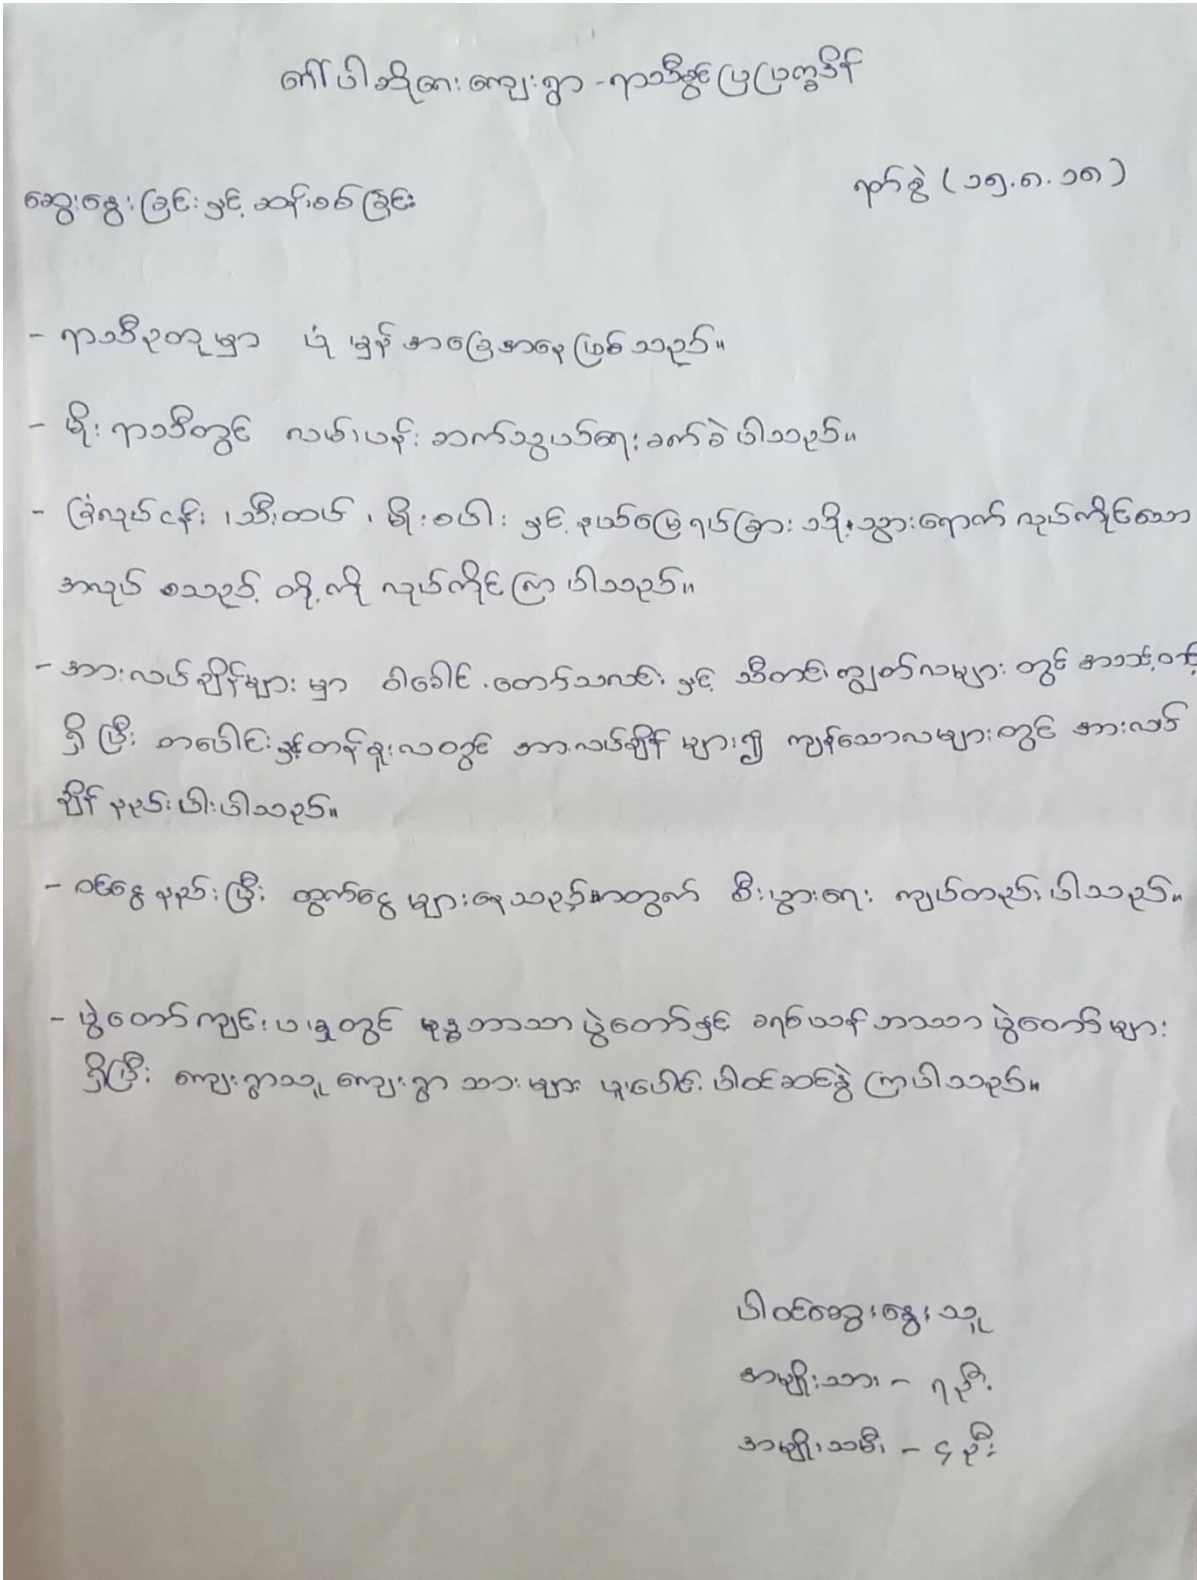 ဒေါ်ပါဆိုဧးကျေးရွာ - ရာသီခွင်ပြပြက္ခဒိန်
ရက်စွဲ (၁၅.၈.၁၈)
ဆွေးနွေးခြင်းနှင့် ဆန်းစစ်ခြင်း
- ရာသီဥတုမှာ ပုံမှန်အခြေအနေဖြစ်သည်။
- မိုးရာသီတွင် လမ်းပန်းဆက်သွယ်ရေးခက်ခဲပါသည်။
- ခြံလုပ်ငန်း၊ သီးထပ်၊ မိုးစပါး နှင့် နယ်မြေရပ်ခြားသို့ သွားရောက် လုပ်ကိုင်သော
အလုပ် စသည့် တို့ကို လုပ်ကိုင်ကြပါသည်။
- အားလပ်ချိန်များမှာ ဝါခေါင်၊ တော်သလင်း နှင့် သီတင်းကျွတ်လများတွင် အသင့်တင့်
ရှိပြီး တပေါင်းနှင့်တန်ခူးလတွင် အားလပ်ချိန်များ၍ ကျန်သောလများတွင် အားလပ်
ချိန်နည်းပါးပါသည်။
- ဝင်ငွေနည်းပြီး ထွက်ငွေများနေသည့်အတွက် စီးပွားရေး ကျပ်တည်းပါသည်။
- ပွဲတော်ကျင်းပမှုတွင် ဗုဒ္ဓဘာသာပွဲတော်နှင့် ခရစ်ယန်ဘာသာပွဲတော်များ
ရှိပြီး ကျေးရွာသူ ကျေးရွာသားများ ပူးပေါင်းပါဝင်ဆင်နွှဲကြပါသည်။
ပါဝင်ဆွေးနွေးသူ
အမျိုးသား - ၇ဦး
အမျိုးသမီး - ၄ဦး